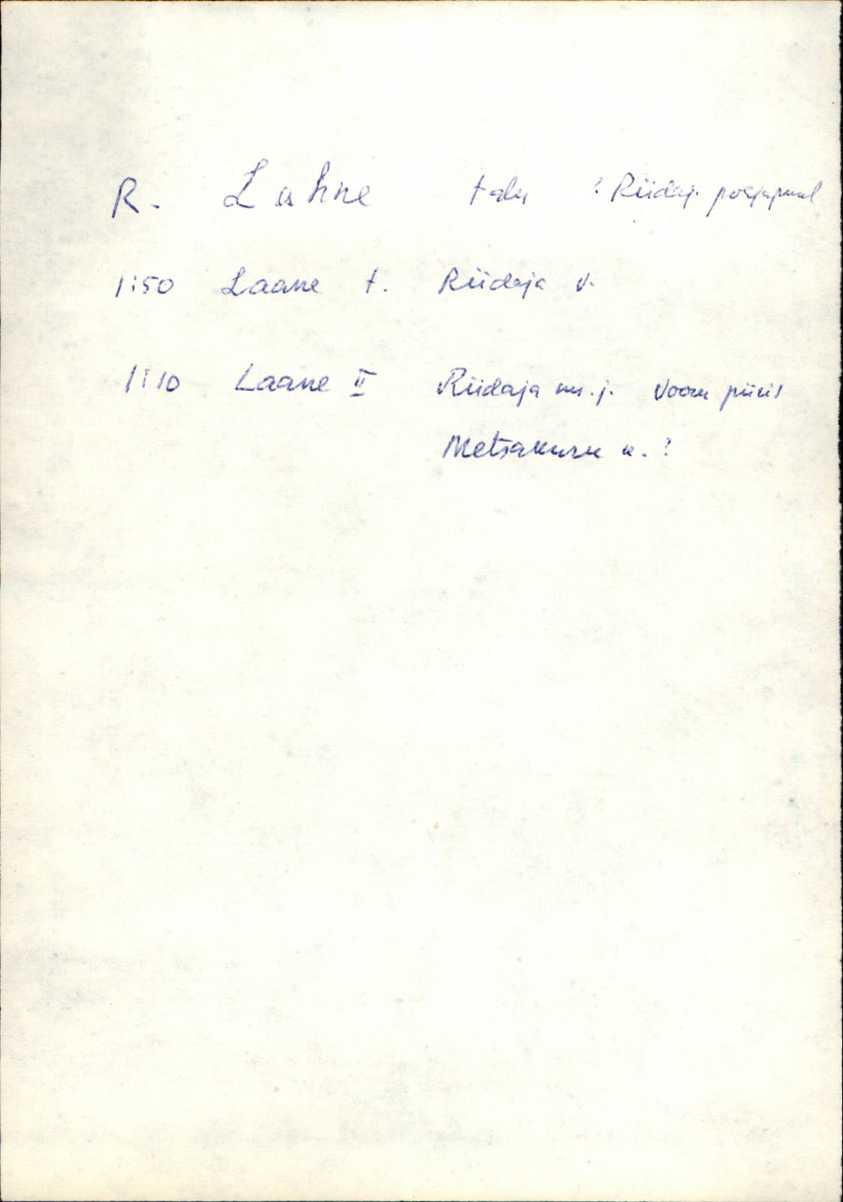 R. Lahne talu ? Riidaj. põhjapool
1:50 Laane t. Riidaja v.
1:10 Laane II Riidaja ms. j. Vooru piiril
Metsakuru k. ?